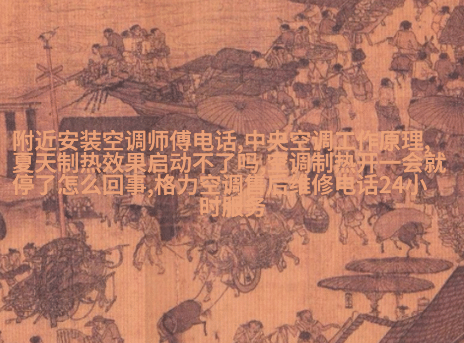 附近安装空调师傅电话,中央空调工作原理,
夏天制热效果启动不了吗,空调制热开一会就
停了怎么回事,格力空调售后维修电话24小
时服务